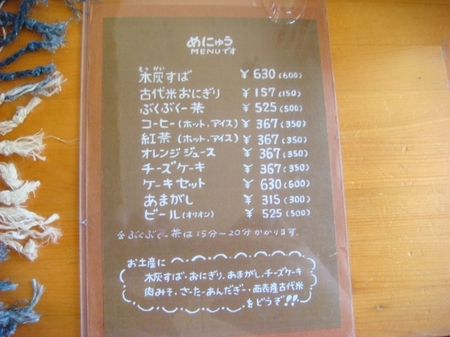 めにゅう
MENUです
もっかい
木灰すば ￥630(600)
古代米おにぎり ￥157(150)
ぶくぶくー茶 ￥525(500)
コーヒー(ホット.アイス) ￥367(350)
紅茶(ホット.アイス) ￥367(350)
オレンジジュース ￥367(350)
チーズケーキ ￥367(350)
ケーキセット ￥630(600)
あまがし ￥315(300)
ビール(オリオン) ￥525(500)
ぶくぶくー茶は15分～20分かかります.
お土産に
木灰すば・おにぎり.あまがし.チーズケーキ
肉みそ・さーたーあんだぎー・西表産古代米
をどうぞ!!